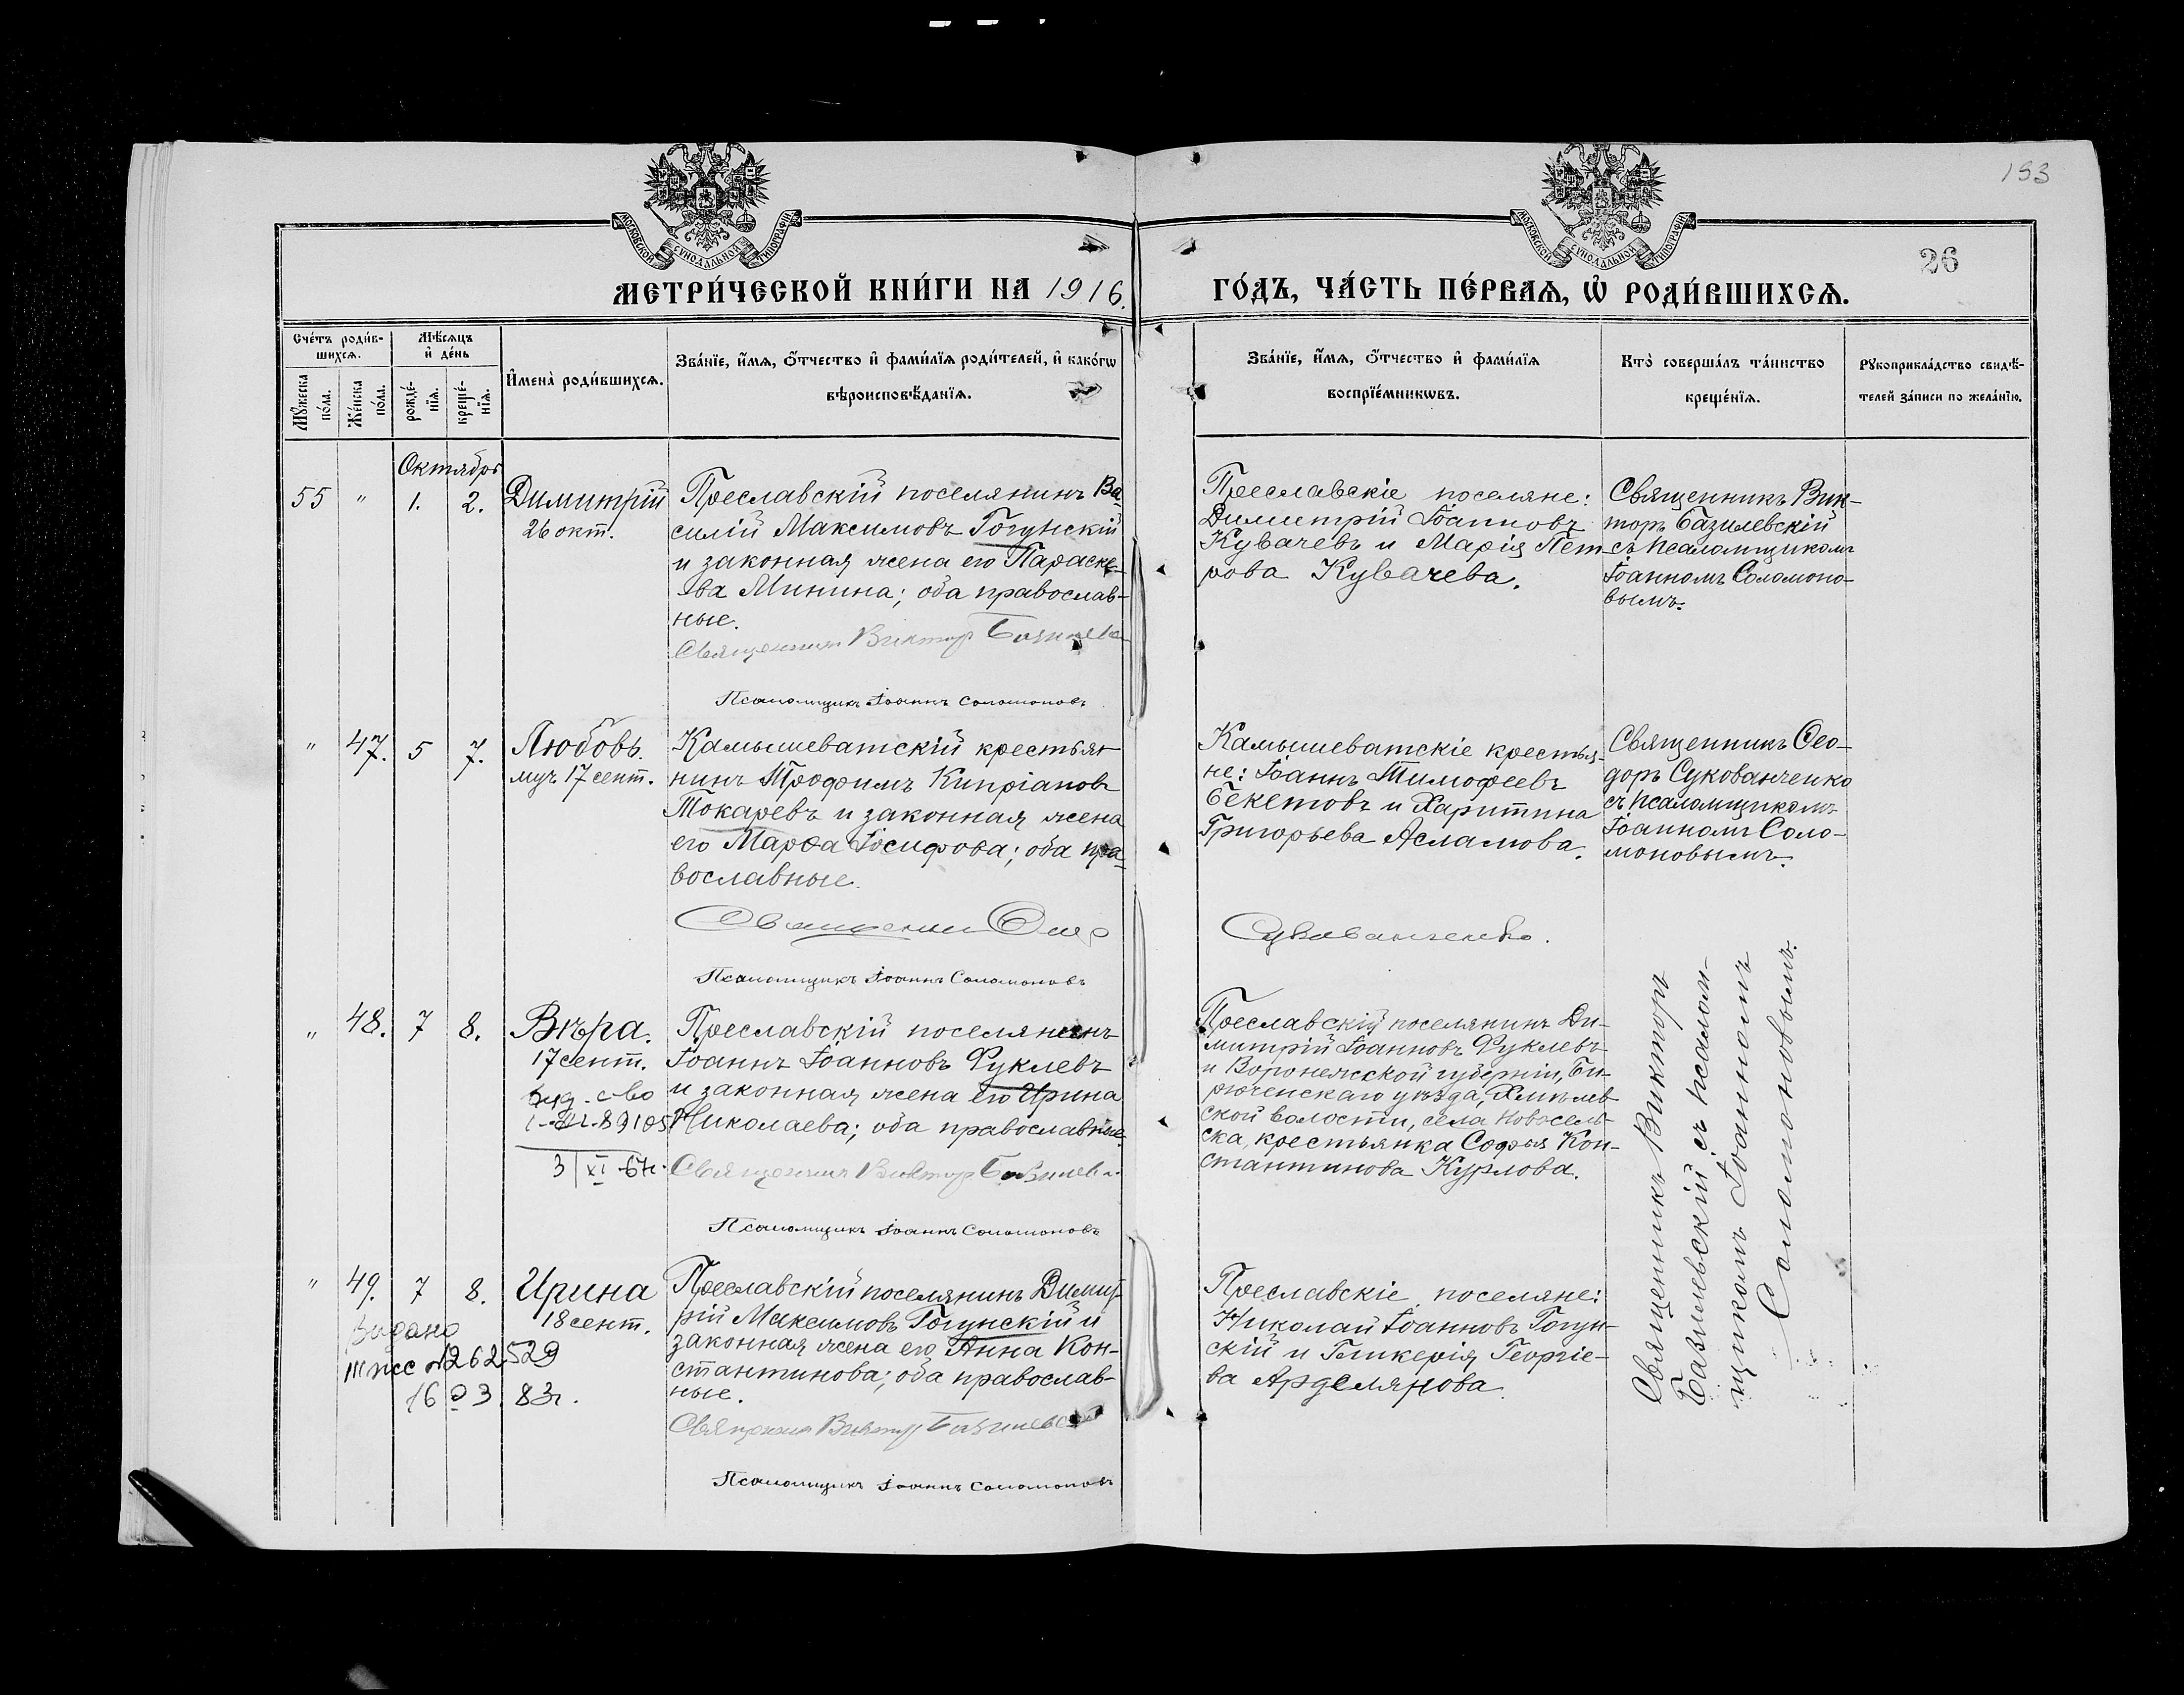 153
26
МОСКОВСКОЙ СѴНОДАЛЬНОЙ ТИПОГРАФІИ
МОСКОВСКОЙ СѴНОДАЛЬНОЙ ТИПОГРАФІИ
МЕТРИ́ЧЕСКОЙ КНИ́ГИ НА 1916.
ГО́ДЪ, ЧА́СТЬ ПЕ́РВАѦ, Ѽ РОДИ́ВШИХСѦ.
Сче́тъ роди́в-
шихсѧ.
Мꙋ́жеска по́ла.
Же́нска по́ла.
Мѣ́сѧцъ
и҆ де́нь
рожде́-
нїѧ.
креще́-
нїѧ.
И҆мена̀ роди́вшихсѧ.
Зва́нїе, и҆́мѧ, ѻ҆́тчество и҆ фами́лїѧ роди́телей, и҆ како́гѡ
вѣроисповѣ́данїѧ.
Зва́нїе, и҆́мѧ, ѻ҆́тчество и҆ фами́лїѧ
воспрїе́мникѡвъ.
Кто̀ соверша́лъ та́инство
креще́нїѧ.
Рꙋкоприкла́дство свидѣ́-
телей за́писи по жела́нїю.
Октябрь
55 " 1. 2.
Димитрій
26 окт.
Преславскій поселянинъ Ва-
силій Максимовъ Гогунскій
и законная жена его Параске-
ва Минина; оба православ-
ные.
Священникъ Виктор Базилевс
Псаломщикъ Іоаннъ Соломоновъ
Преславскіе поселяне:
Димитрій Іоанновъ
Кувачевъ и Марія Пет-
рова Кувачева.
Священникъ Вик-
торъ Базилевскій
съ псаломщикомъ
Іоанномъ Соломоно-
вымъ.
" 47. 5 7.
Любовь.
муч. 17 сент.
Камышеватскій крестья-
нинъ Трофимъ Кипріановъ
Токаревъ и законная жена
его Марѳа Іосифова; оба пра-
вославные.
Священник Ѳеод
Псаломщикъ Іоаннъ Соломоновъ
Камышеватскіе крестья-
не: Іоаннъ Тимофеевъ
Бекетовъ и Харитина
Григорьева Асламова.
Сукованченко.
Священникъ Ѳео-
доръ Сукованченко
съ псаломщикомъ
Іоанномъ Соло-
моновымъ.
" 48. 7 8.
Вѣра.
17 сент.
3 | XI 64г.
Преславскій поселянинъ
Іоаннъ Іоанновъ Фуклевъ
и законная жена его Ирина
Николаева; оба православные.
Священникъ Виктор Базилевс
Псаломщикъ Іоаннъ Соломоновъ
Преславскій поселянинъ Ди-
митрій Іоанновъ Фуклевъ
и Воронежской губерніи, Би-
рюченскаго уѣзда, Хмѣлев-
ской волости, села Новосель-
ска, крестьянка Софья Кон-
стантинова Курлова.
Священникъ Викторъ
Базилевскій съ псалом-
щикомъ Іоанномъ
Соломоновымъ.
" 49. 7 8.
Ирина
18 сент.
Видано
III ЖС № 262529
16 03 83г.
Преславскій поселянинъ Димит-
рій Максимовъ Гогунскій и
законная жена его Анна Кон-
стантинова; оба православ-
ные.
Священник Виктор Базилевск
Псаломщикъ Іоаннъ Соломоновъ
Преславскіе поселяне:
Николай Іоанновъ Гогун-
скій и Гликерія Георгіе-
ва Арделянова.